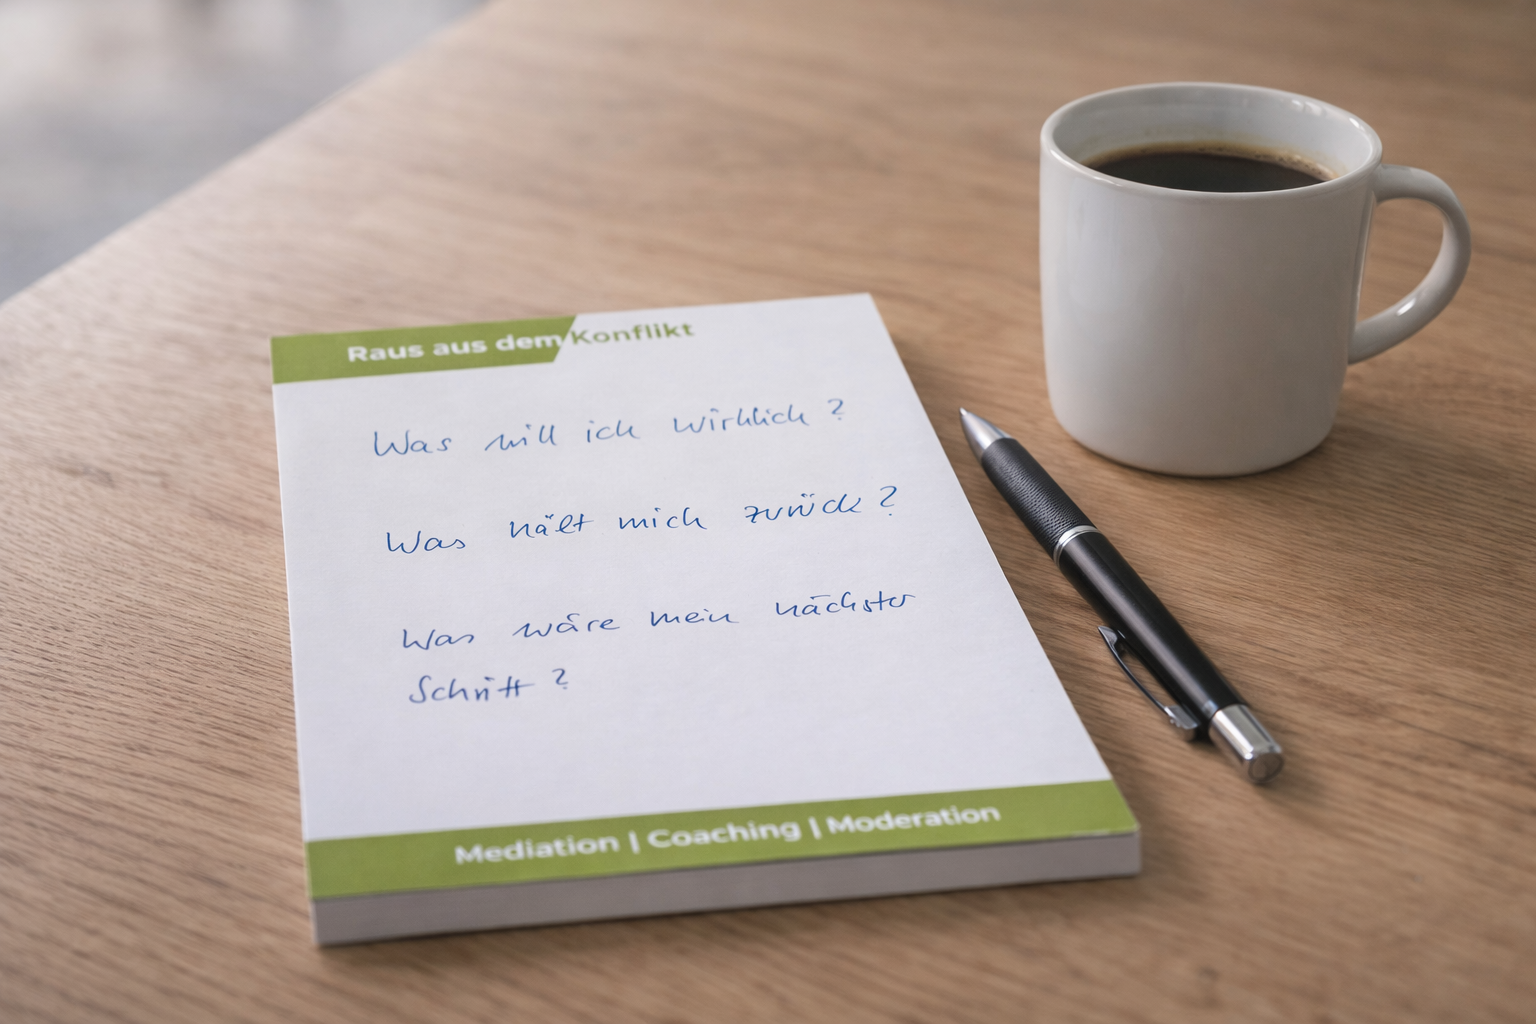 Raus aus dem Konflikt
Was will ich wirklich?
Was hält mich zurück?
Was wäre mein nächster
Schritt?
Mediation | Coaching | Moderation